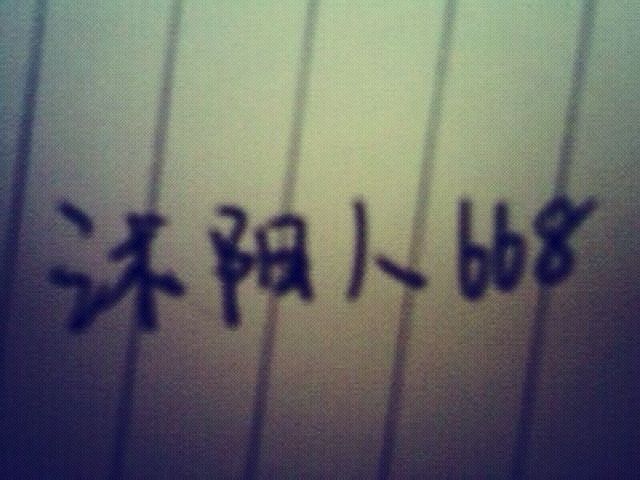 沭阳人668